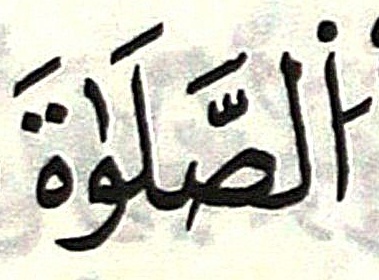 اَلصَّلَوٰةَ